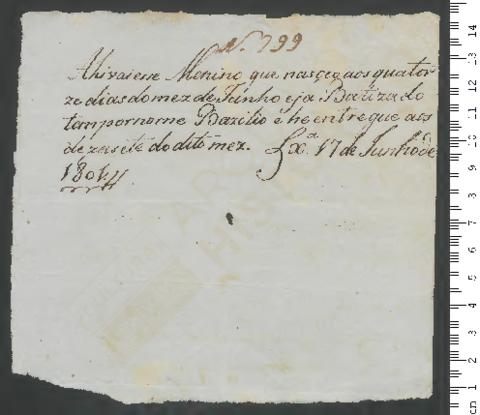 N. 799
Ahi vai esse Menino que nasçeo aos quator
ze dias do mez de Junho e ja Batizado
tam por nome Bazilio e he entregue aos
dezasete do dito mez. Lxª 17 de Junho de
1804